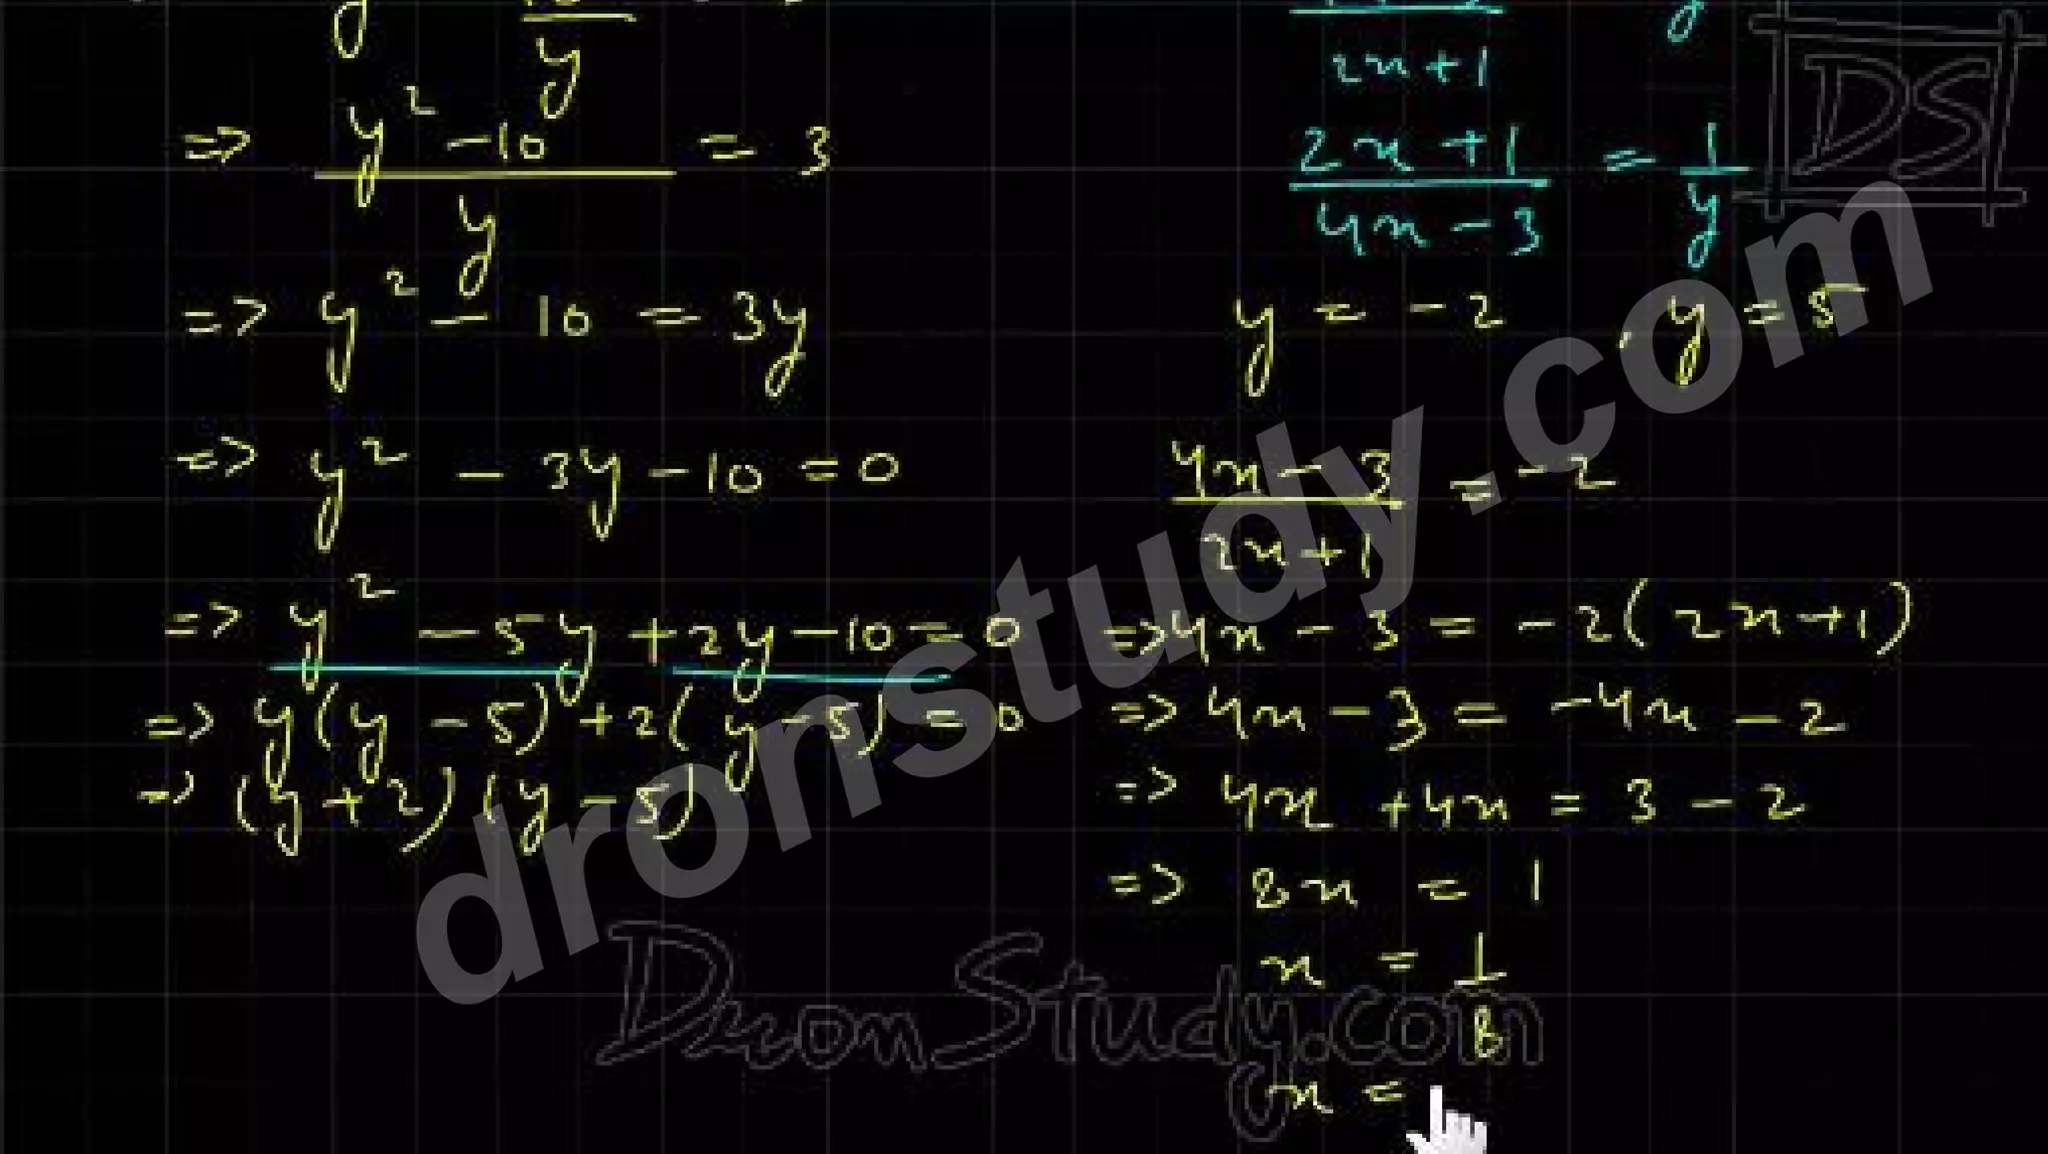 y - 10/y = 3
=> (y² - 10)/y = 3
=> y² - 10 = 3y
=> y² - 3y - 10 = 0
=> y² - 5y + 2y - 10 = 0
=> y(y - 5) + 2(y - 5) = 0
=> (y + 2)(y - 5)
2x + 1
(2x + 1)/(4x - 3) = 1/y
y = -2 , y = 5
(4x - 3)/(2x + 1) = -2
=> 4x - 3 = -2(2x + 1)
=> 4x - 3 = -4x - 2
=> 4x + 4x = 3 - 2
=> 8x = 1
x = 1/8
x =
DS
dronstudy.com
DronStudy.com